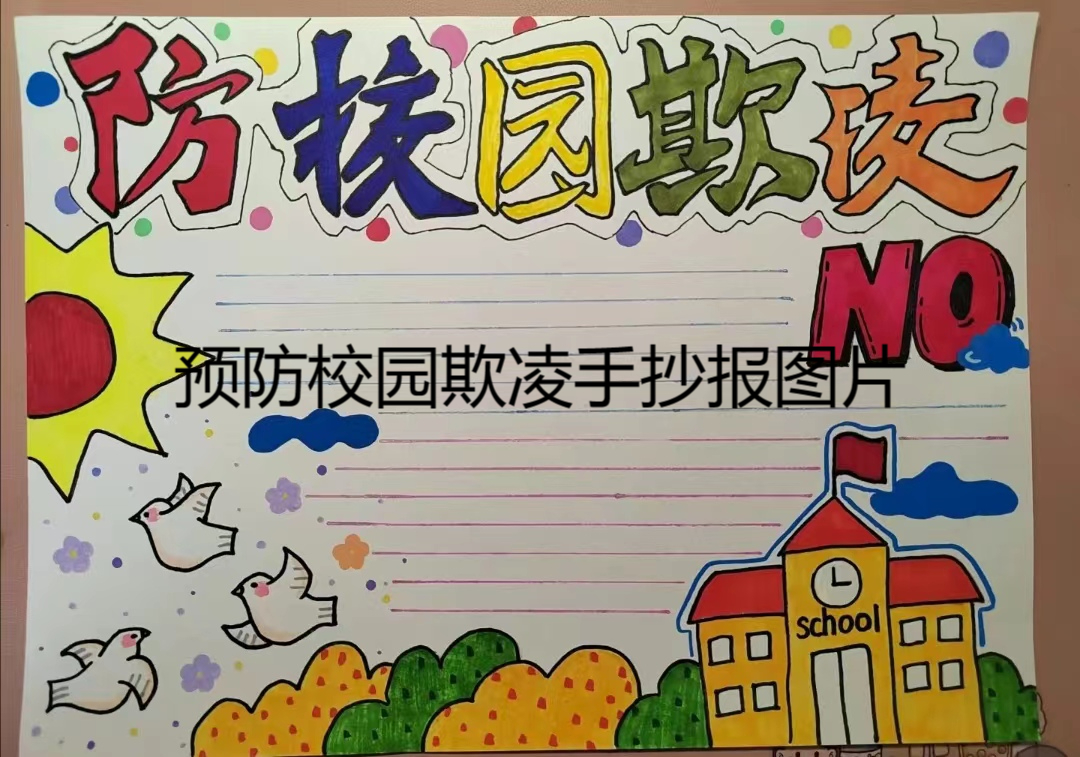 防校园欺凌
NO
预防校园欺凌手抄报图片
school